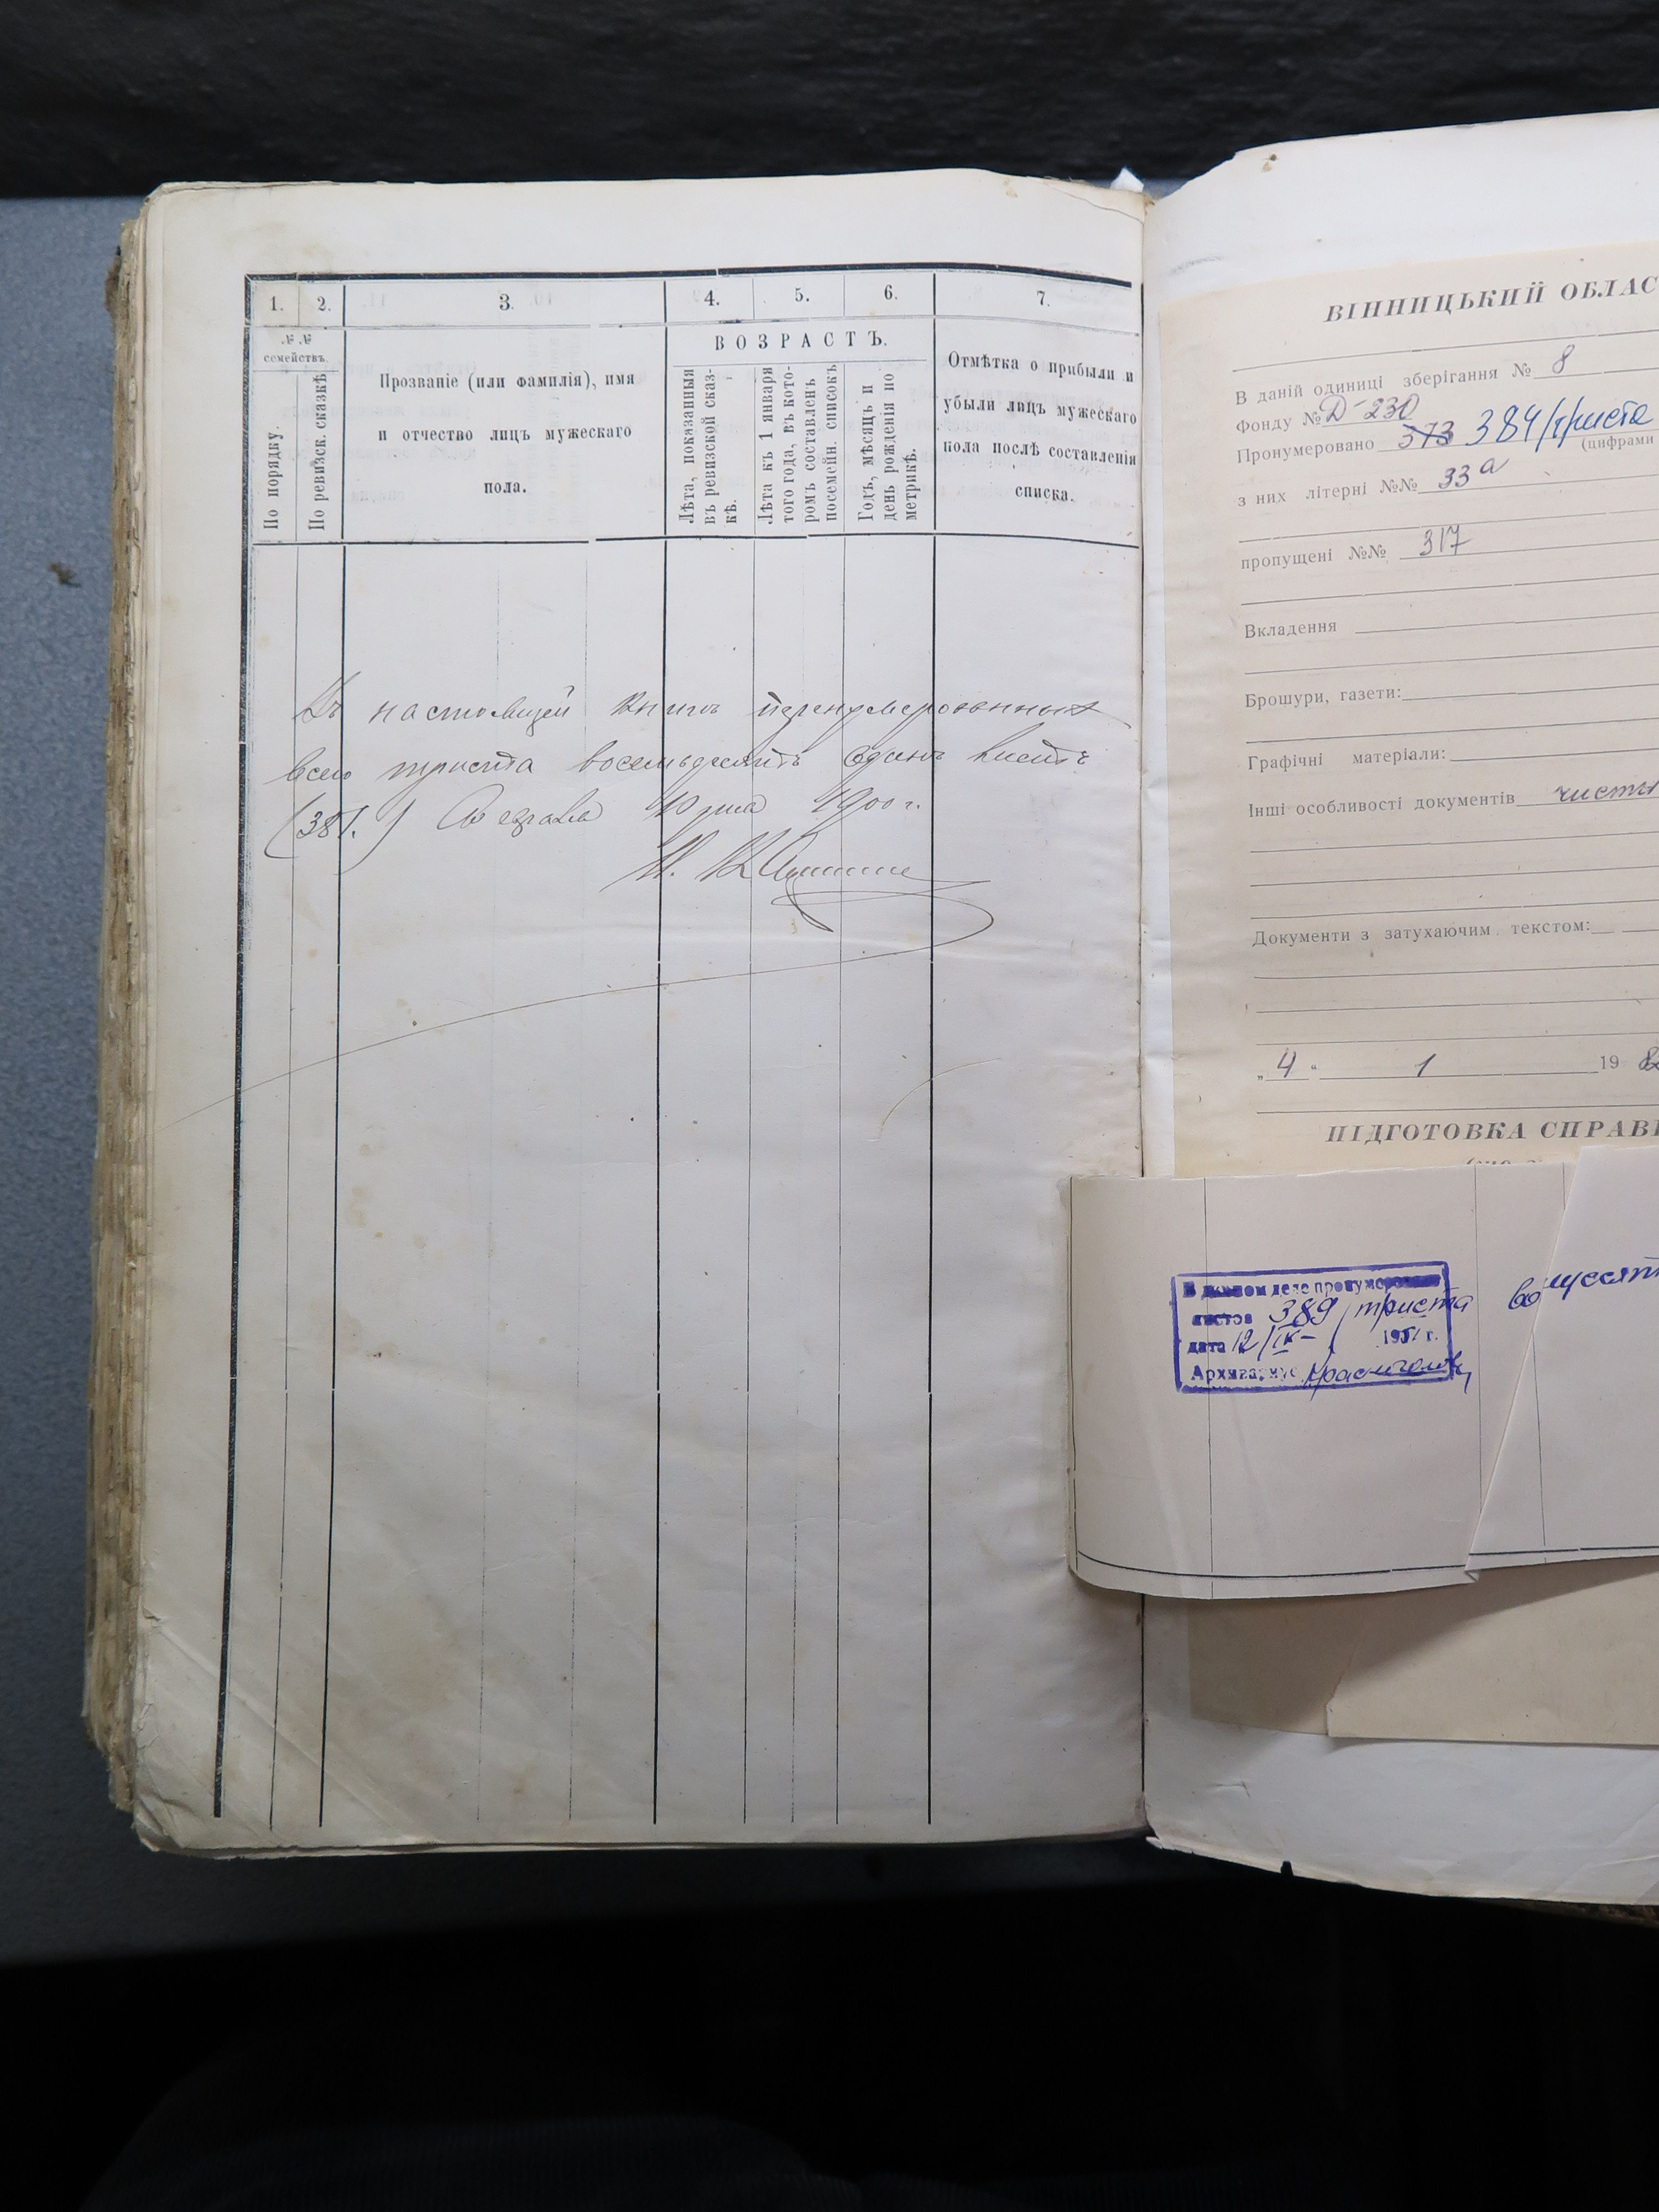 1. 2. 3. 4. 5. 6. 7.
№ №
семействъ.
По порядку.
По ревизск. сказкѣ
Прозваніе (или фамилія), имя
и отчество лицъ мужескаго
пола.
ВОЗРАСТЪ.
Лѣта, показанныя
въ ревизской сказ-
кѣ.
Лѣта къ 1 января
того года, въ кото-
ромъ составленъ
посемейн. списокъ
Годъ, мѣсяцъ и
день рожденія по
метрикѣ.
Отмѣтка о прибыли и
убыли лицъ мужескаго
пола послѣ составленія
списка.
Въ настоящей книгѣ перенумерованныхъ
всего триста восемьдесятъ одинъ листъ
(381.) 1900 г.
ВІННИЦЬКИЙ ОБЛАС
В даній одиниці зберігання № 8
Фонду № Д-230
Пронумеровано 373 384/триста
(цифрами
з них літерні №№ 33а
пропущені №№ 317
Вкладення
Брошури, газети:
Графічні матеріали:
Інші особливості документів чисты
Документи з затухаючим текстом:
„4“ 1 19 82
ПІДГОТОВКА СПРАВ
В данном деле пронумеровано
листов 389 /триста
дата 12/IX- 1951 г.
Архивариус